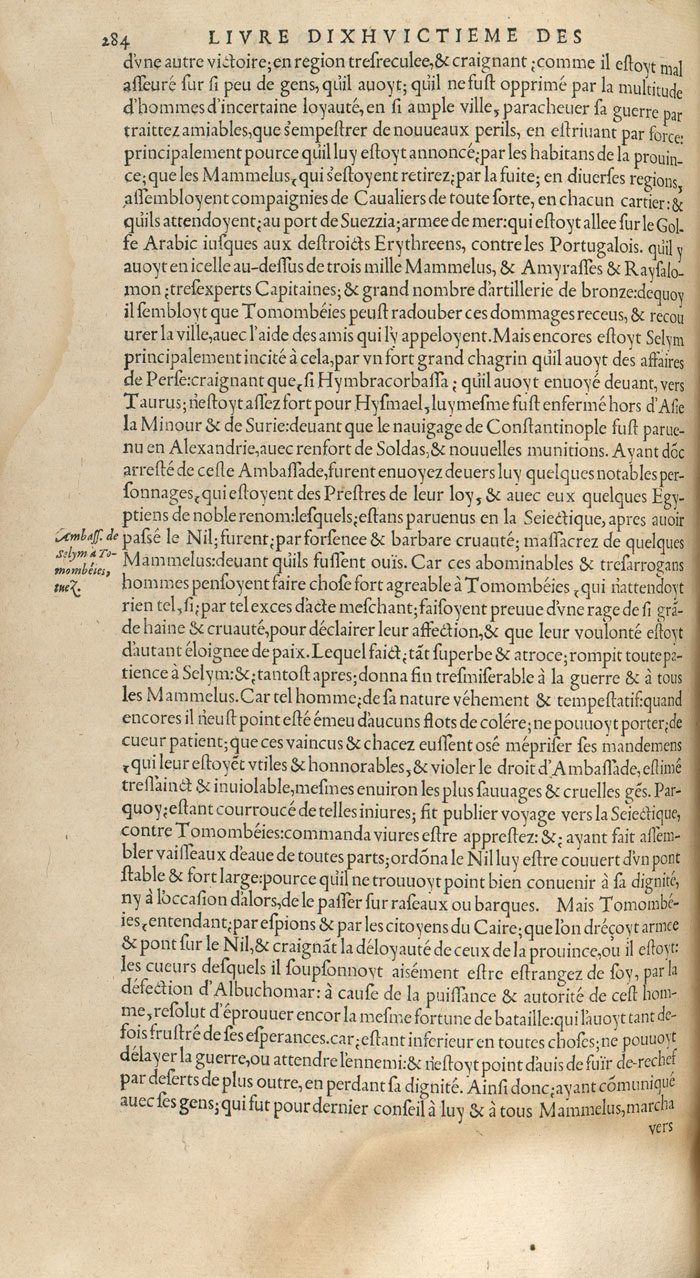 284 LIVRE DIXHVICTIEME DES
d'vne autre victoire; en region tresreculee, & craignant ; comme il estoyt mal
asseuré sur si peu de gens, qu'il auoyt; qu'il ne fust opprimé par la multitude
d'hommes d'incertaine loyauté, en si ample ville, paracheuer sa guerre par
traittez amiables, que s'empestrer de nouueaux perils, en estriuant par force:
principalement pource qu'il luy estoyt annoncé; par les habitans de la prouin-
ce; que les Mammelus, qui s'estoyent retirez; par la fuite; en diuerses regions,
assembloyent compaignies de Caualiers de toute sorte, en chacun cartier: &
qu'ils attendoyent; au port de Suezzia; armee de mer: qui estoyt allee sur le Gol-
fe Arabic iusques aux destroicts Erythreens, contre les Portugalois. qu'il y
auoyt en icelle au-dessus de trois mille Mammelus, & Amyrasses & Raysalo-
mon ; tresexperts Capitaines; & grand nombre d'artillerie de bronze: dequoy
il sembloyt que Tomombéies peust radouber ces dommages receus, & recou
urer la ville, auec l'aide des amis qui l'y appeloyent. Mais encores estoyt Selym
principalement incité à cela, par vn fort grand chagrin qu'il auoyt des affaires
de Perse: craignant que, si Hymbracorbassa ; qu'il auoyt enuoyé deuant, vers
Taurus; n'estoyt assez fort pour Hysmael, luymesme fust enfermé hors d'Asie
la Minour & de Surie: deuant que le nauigage de Constantinople fust parue-
nu en Alexandrie, auec renfort de Soldas, & nouuelles munitions. Ayant dõc
arresté de ceste Ambassade, furent enuoyez deuers luy quelques notables per-
sonnages, qui estoyent des Prestres de leur loy, & auec eux quelques Egy-
ptiens de noble renom: lesquels; estans paruenus en la Seiectique, apres auoir
passé le Nil; furent; par forsenee & barbare cruauté; massacrez de quelques
Mammelus: deuant qu'ils fussent ouïs. Car ces abominables & tresarrogans
hommes pensoyent faire chose fort agreable à Tomombéies , qui n'attendoyt
rien tel, si; par tel exces d'acte meschant; faisoyent preuue d'vne rage de si grã-
de haine & cruauté, pour déclairer leur affection, & que leur voulonté estoyt
d'autant éloignee de paix. Lequel faict; tãt superbe & atroce; rompit toute pa-
tience à Selym: &; tantost apres; donna fin tresmiserable à la guerre & à tous
les Mammelus. Car tel homme; de sa nature véhement & tempestatif: quand
encores il n'eust point esté émeu d'aucuns flots de colére; ne pouuoyt porter; de
cueur patient; que ces vaincus & chacez eussent osé mépriser ses mandemens
, qui leur estoyẽt vtiles & honnorables, & violer le droit d'Ambassade, estimé
tressainct & inuiolable, mesmes enuiron les plus sauuages & cruelles gẽs. Par-
quoy; estant courroucé de telles iniures; fit publier voyage vers la Seiectique,
contre Tomombéies: commanda viures estre apprestez: &; ayant fait assem-
bler vaisseaux d'eaue de toutes parts; ordõna le Nil luy estre couuert d'vn pont
stable & fort large: pource qu'il ne trouuoyt point bien conuenir à sa dignité,
ny à l'occasion d'alors, de le passer sur raseaux ou barques. Mais Tomombé-
ies, entendant; par espions & par les citoyens du Caire; que l'on dréçoyt armee
& pont sur le Nil, & craignãt la déloyauté de ceux de la prouince, ou il estoyt:
les cueurs desquels il soupsonnoyt aisément estre estrangez de soy, par la
défection d'Albuchomar: à cause de la puissance & autorité de cest hom-
me, resolut d'éprouuer encor la mesme fortune de bataille: qui l'auoyt tant de-
fois frustré de ses esperances. car; estant inferieur en toutes choses; ne pouuoyt
délayer la guerre, ou attendre l'ennemi: & n'estoyt point d'auis de fuïr de-rechef
par deserts de plus outre, en perdant sa dignité. Ainsi donc; ayant cõmuniqué
auec ses gens; qui fut pour dernier conseil à luy & à tous Mammelus, marcha
vers
Ambass. de
Selym à To-
mombéies,
tuez.